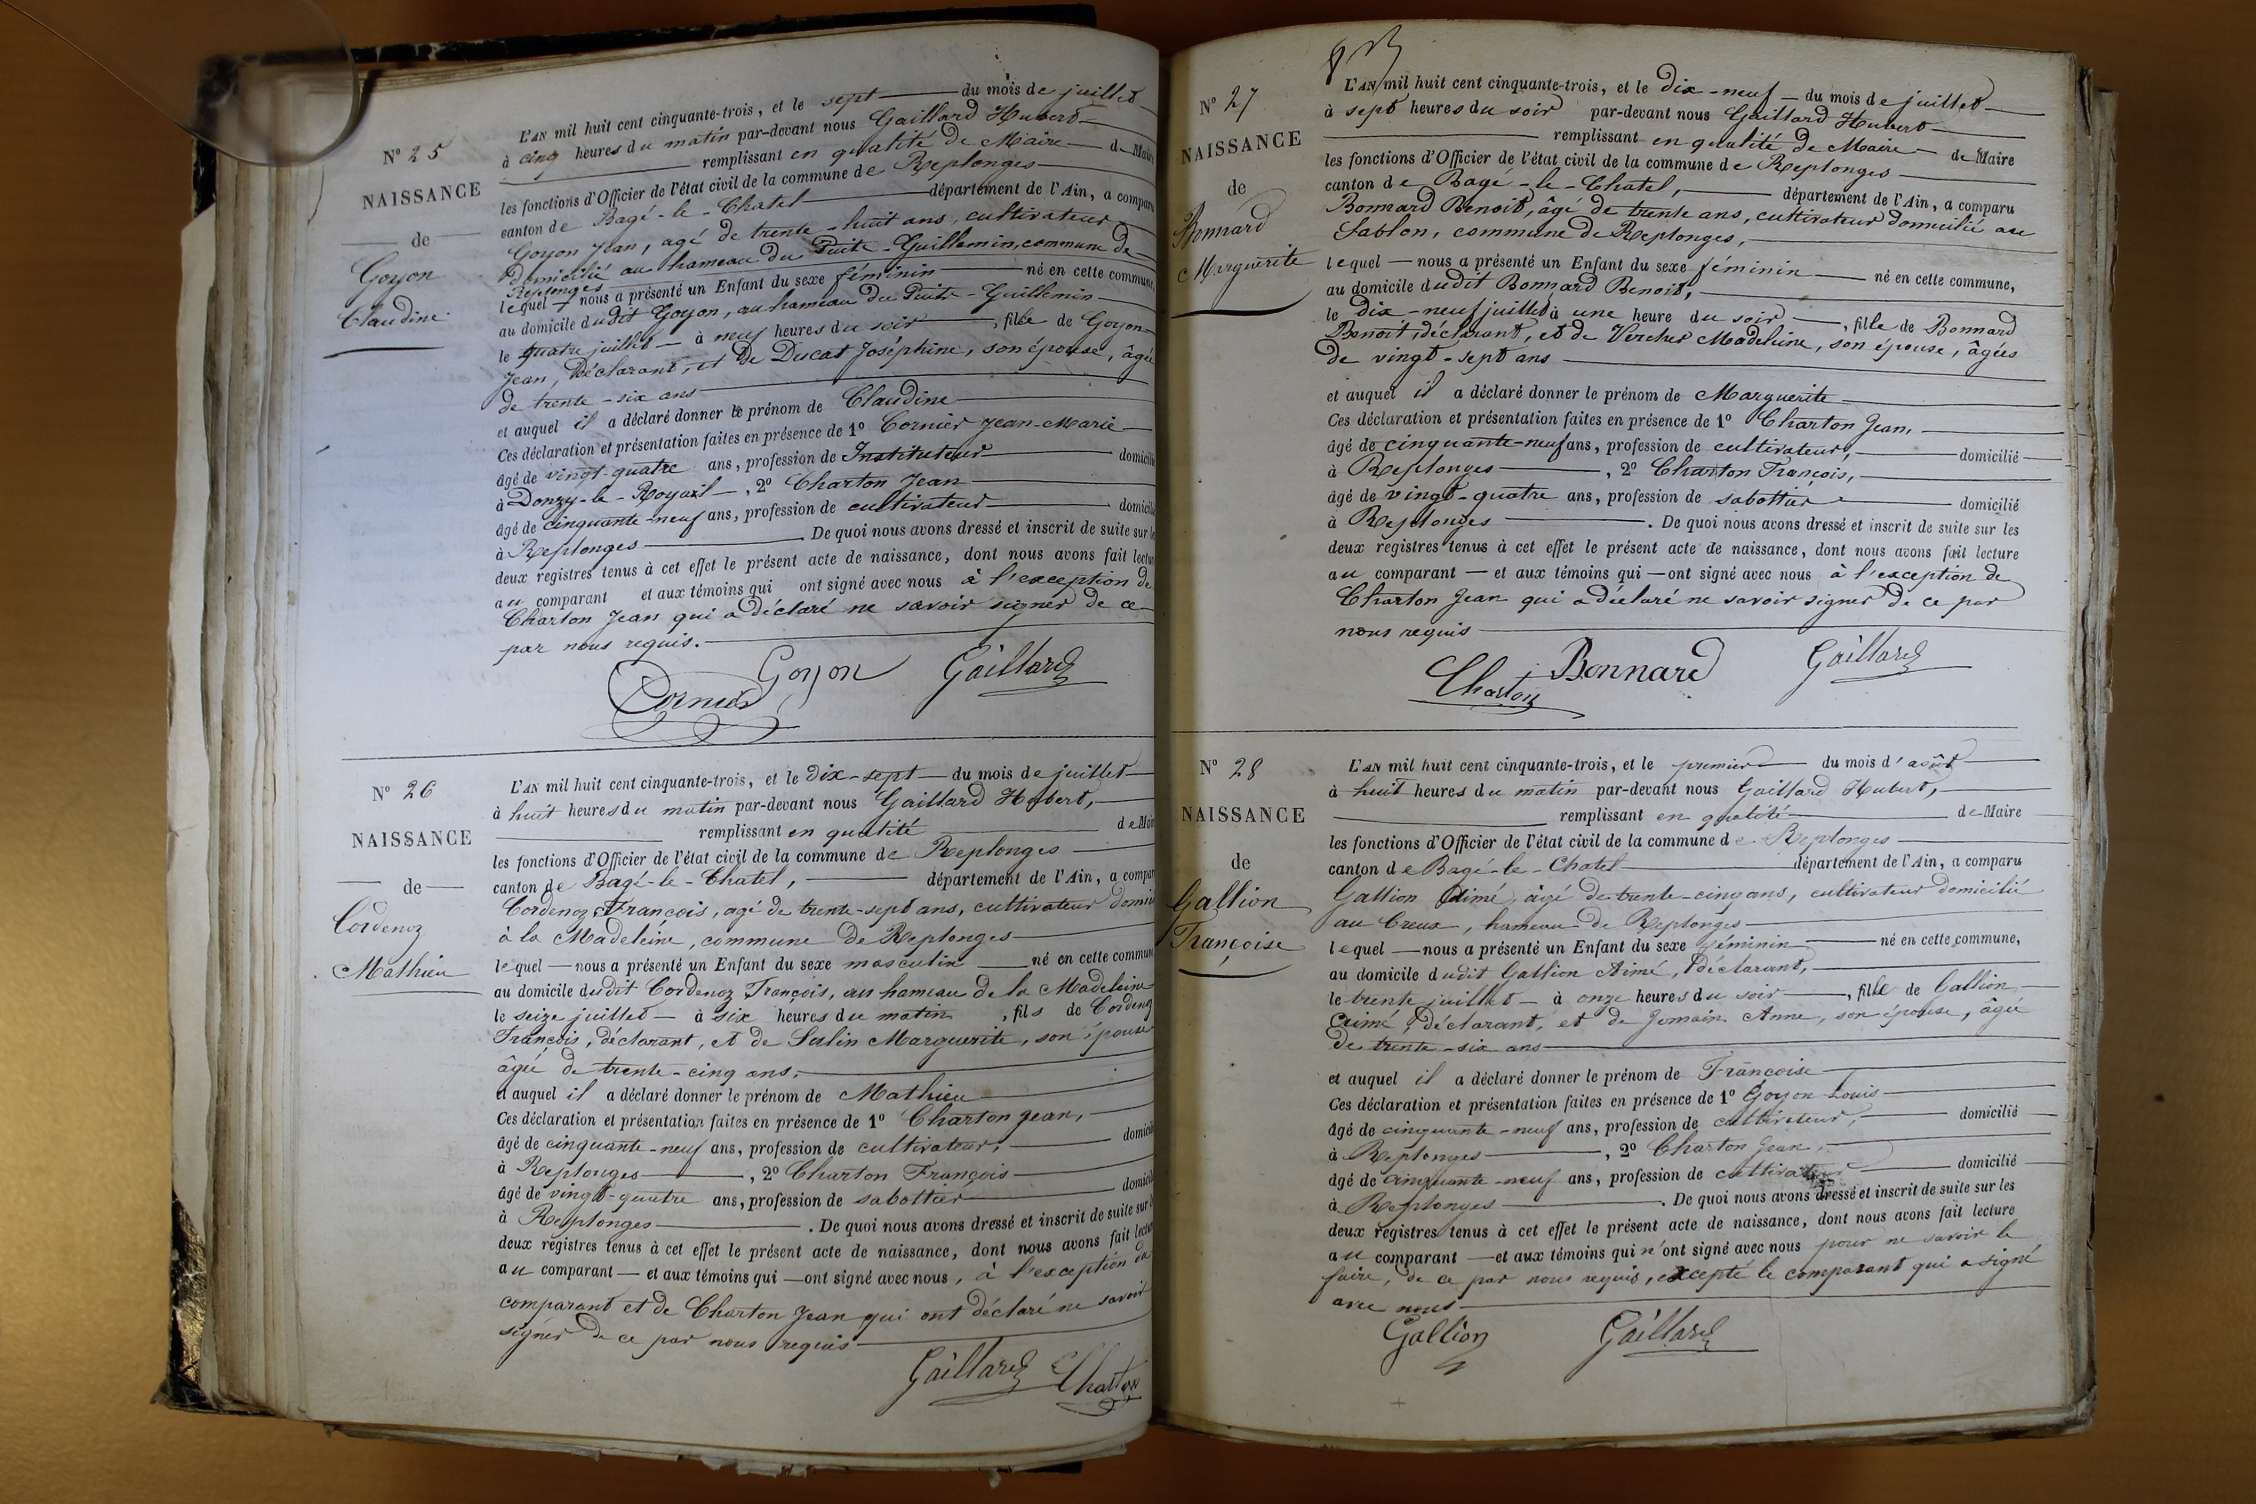 N° 25
NAISSANCE
de
Goyon
Claudine
L'AN mil huit cent cinquante-trois, et le sept du mois de juillet
à cinq heures du matin par-devant nous Gaillard Hubert
remplissant en qualité de Maire de Maire
les fonctions d'Officier de l'état civil de la commune de Replonges
canton de Bagé-le-Chatel département de l'Ain, a comparu
Goyon Jean, agé de trente-huit ans, cultivateur
domicilié au hameau du Puits-Guillemin, commune de
Replonges
lequel nous a présenté un Enfant du sexe féminin né en cette commune,
au domicile dudit Goyon, au hameau du Puits-Guillemin
le quatre juillet à neuf heures du soir, fille de Goyon
Jean, déclarant, et de Ducat Joséphine, son épouse, âgée
de trente-six ans
et auquel il a déclaré donner le prénom de Claudine
Ces déclaration et présentation faites en présence de 1° Cornier Jean-Marie
âgé de vingt-quatre ans, profession de Instituteur domicilié
à Donzy-le-Royail, 2° Charton Jean
âgé de cinquante-neuf ans, profession de cultivateur domicilié
à Replonges. De quoi nous avons dressé et inscrit de suite sur les
deux registres tenus à cet effet le présent acte de naissance, dont nous avons fait lecture
au comparant et aux témoins qui ont signé avec nous à l'exception de
Charton Jean qui a déclaré ne savoir signer de ce
par nous requis.
Goyon Gaillard
Cornier
N° 26
NAISSANCE
de
Cordenoz
Mathieu
L'AN mil huit cent cinquante-trois, et le dix-sept du mois de juillet
à huit heures du matin par-devant nous Gaillard Hubert,
remplissant en qualité de Maire
les fonctions d'Officier de l'état civil de la commune de Replonges
canton de Bagé-le-Chatel, département de l'Ain, a comparu
Cordenoz François, agé de trente-sept ans, cultivateur domici
à la Madeleine, commune de Replonges
lequel nous a présenté un Enfant du sexe masculin né en cette commune
au domicile dudit Cordenoz François, au hameau de la Madeleine
le seize juillet à six heures du matin, fils de Cordenoz
François, déclarant, et de Salin Marguerite, son épouse
âgée de trente-cinq ans,
et auquel il a déclaré donner le prénom de Mathieu
Ces déclaration et présentation faites en présence de 1° Charton Jean,
âgé de cinquante-neuf ans, profession de cultivateur, domicilié
à Replonges, 2° Charton François
âgé de vingt-quatre ans, profession de sabottier domicilié
à Replonges. De quoi nous avons dressé et inscrit de suite sur les
deux registres tenus à cet effet le présent acte de naissance, dont nous avons fait lecture
au comparant et aux témoins qui ont signé avec nous, à l'exception du
comparant et de Charton Jean qui ont déclaré ne savoir
signer de ce par nous requis
Gaillard Charton
N° 27
NAISSANCE
de
Bonnard
Marguerite
L'AN mil huit cent cinquante-trois, et le dix-neuf du mois de juillet
à sept heures du soir par-devant nous Gaillard Hubert
remplissant en qualité de Maire de Maire
les fonctions d'Officier de l'état civil de la commune de Replonges
canton de Bagé-le-Chatel, département de l'Ain, a comparu
Bonnard Benoit, âgé de trente ans, cultivateur domicilié au
Sablon, commune de Replonges,
lequel nous a présenté un Enfant du sexe féminin né en cette commune,
au domicile dudit Bonnard Benoit,
le dix-neuf juillet à une heure du soir, fille de Bonnard
Benoit, déclarant, et de Vercher Madeleine, son épouse, âgées
de vingt-sept ans
et auquel il a déclaré donner le prénom de Marguerite
Ces déclaration et présentation faites en présence de 1° Charton Jean,
âgé de cinquante-neuf ans, profession de cultivateur, domicilié
à Replonges, 2° Charton François,
âgé de vingt-quatre ans, profession de sabottier domicilié
à Replonges. De quoi nous avons dressé et inscrit de suite sur les
deux registres tenus à cet effet le présent acte de naissance, dont nous avons fait lecture
au comparant et aux témoins qui ont signé avec nous à l'exception de
Charton Jean qui a déclaré ne savoir signer de ce par
nous requis
Charton Bonnard Gaillard
N° 28
NAISSANCE
de
Gallion
Françoise
L'AN mil huit cent cinquante-trois, et le premier du mois d'août
à huit heures du matin par-devant nous Gaillard Hubert,
remplissant en qualité de Maire
les fonctions d'Officier de l'état civil de la commune de Replonges
canton de Bagé-le-Chatel département de l'Ain, a comparu
Gallion Aimé, âgé de trente-cinq ans, cultivateur domicilié
au Creux, hameau de Replonges
lequel nous a présenté un Enfant du sexe féminin né en cette commune,
au domicile dudit Gallion Aimé, déclarant,
le trente juillet à onze heures du soir, fille de Gallion
Aimé, déclarant, et de Jomain Anne, son épouse, âgée
de trente-six ans
et auquel il a déclaré donner le prénom de Françoise
Ces déclaration et présentation faites en présence de 1° Goyon Louis
âgé de cinquante-neuf ans, profession de cultivateur, domicilié
à Replonges, 2° Charton Jean,
âgé de cinquante-neuf ans, profession de cultivateur domicilié
à Replonges. De quoi nous avons dressé et inscrit de suite sur les
deux registres tenus à cet effet le présent acte de naissance, dont nous avons fait lecture
au comparant et aux témoins qui n'ont signé avec nous pour ne savoir le
faire, de ce par nous requis, excepté le comparant qui a signé
avec nous
Gallion Gaillard